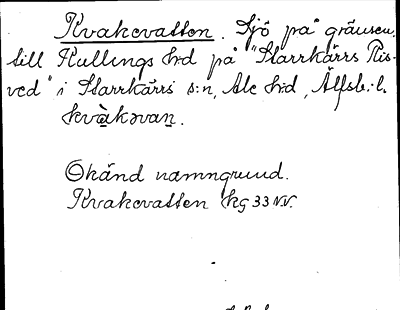 Kvakevatten. Sjö på gränsen
till Kullings hd på "Starrkärrs Ris-
ved" i Starrkärrs s:n, Ale hd, Älfsb. l.
kvàkəvan.
Okänd namngrund.
Kvakevatten kg 33 NV.